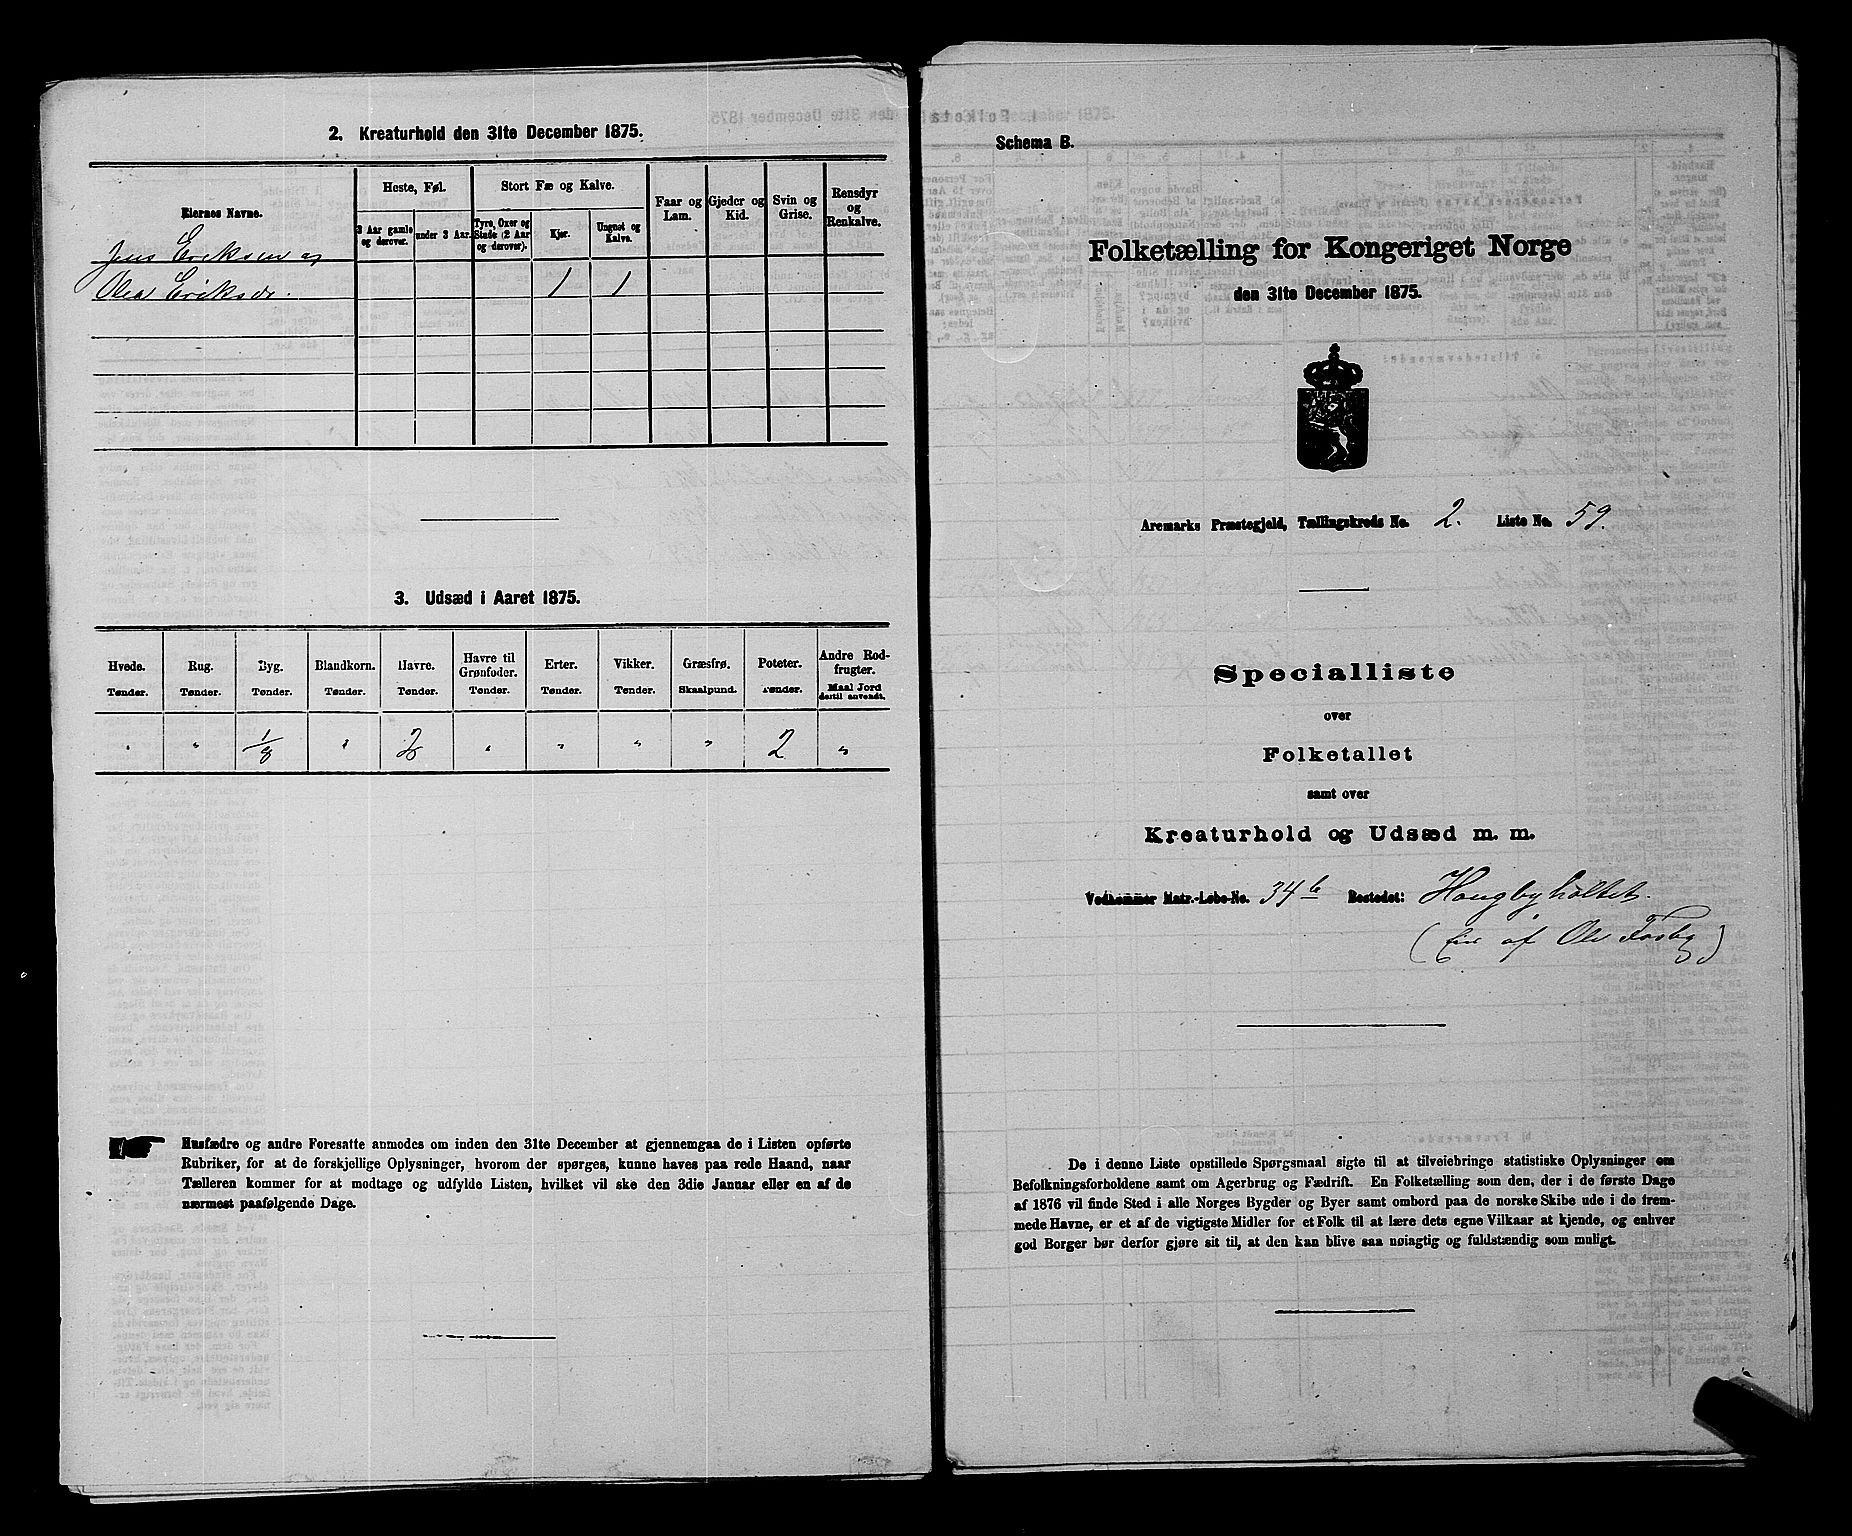 2. Kreaturhold den 31te December 1875.
Eiernes Navne.
Heste, Føl.
3 Aar gamle og derover.
under 3 Aar.
Stort Fæ og Kalve.
Tyre, Oxer og Stude (2 Aar og derover).
Kjør.
Ungnøt og Kalve.
Faar og Lam.
Gjeder og Kid.
Svin og Grise.
Rensdyr og Renkalve.
Jens Eriksen og
Olea Eriksdr. 1 1
3. Udsæd i Aaret 1875.
Hvede. Rug. Byg. Blandkorn. Havre. Havre til Grønfoder. Erter. Vikker. Græsfrø. Poteter. Andre Rodfrugter.
Tønder. Tønder. Tønder. Tønder. Tønder. Tønder. Tønder. Tønder. Skaalpund. Tønder. Maal Jord dertil anvendt.
" " 1/8 " 2 " " " " 2 "
Husfædre og andre Foresatte anmodes om inden den 31te December at gjennemgaa de i Listen opførte
Rubriker, for at de forskjellige Oplysninger, hvorom der spørges, kunne haves paa rede Haand, naar
Tælleren kommer for at modtage og udfylde Listen, hvilket vil ske den 3die Januar eller en af de
nærmest paafølgende Dage.
Schema B.
Folketælling for Kongeriget Norge
den 31te December 1875.
Aremarks Præstegjeld, Tællingskreds No. 2. Liste No. 59.
Specialliste
over
Folketallet
samt over
Kreaturhold og Udsæd m. m.
Vedkommer Matr.-Løbe-No. 34 b Bostedet: Hougbyholtet.
( af Ole Fosby)
De i denne Liste opstillede Spørgsmaal sigte til at tilveiebringe statistiske Oplysninger om
Befolkningsforholdene samt om Agerbrug og Fædrift. En Folketælling som den, der i de første Dage
af 1876 vil finde Sted i alle Norges Bygder og Byer samt ombord paa de norske Skibe ude i de frem-
mede Havne, er et af de vigtigste Midler for et Folk til at lære dets egne Vilkaar at kjende, og enhver
god Borger bør derfor gjøre sit til, at den kan blive saa nøiagtig og fuldstændig som muligt.